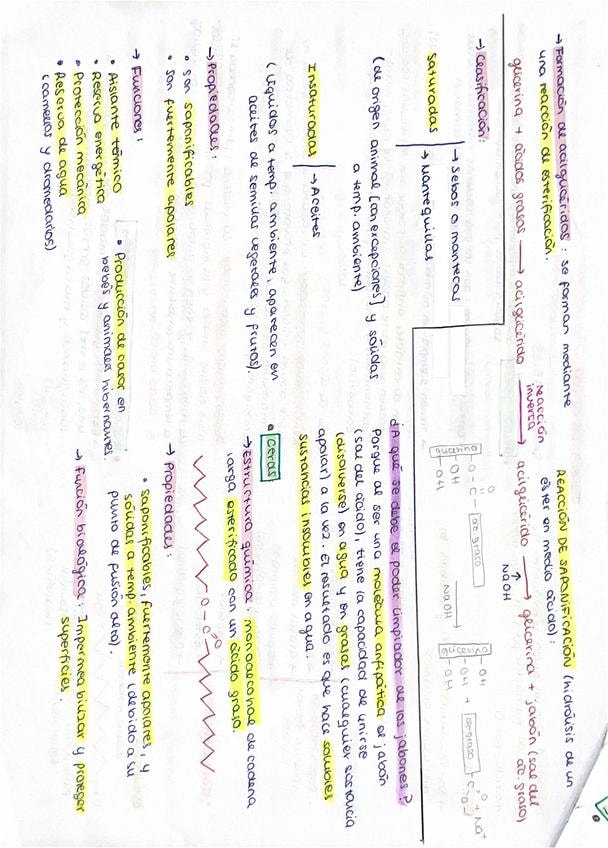 → Formación de acilglicéridos : se forman mediante
una reacción de esterificación.
glicerina + ácidos grasos → acilglicérido
reacción
inversa
REACCIÓN DE SAPONIFICACIÓN (hidrólisis de un
éster en medio ácido) :
acilglicérido → glicerina + jabón (sal del
ác. graso)
NaOH
glicerina
OH
OH
O - C - ác graso
O
NaOH
glicerina
- OH
- OH
- OH
+
ác graso
C
O
O
+ Na+
→ Clasificación:
Saturadas
→ Sebos o mantecas
→ Mantequillas
(de origen animal [con excepciones] y sólidas
a temp. ambiente)
Insaturadas
→ Aceites
(líquidas a temp. ambiente, aparecen en
aceites de semillas vegetales y frutos).
→ Propiedades :
• Son saponificables
• Son fuertemente apolares
→ Funciones :
• Aislante térmico
• Reserva energética
• Protección mecánica
• Reserva de agua
(camellos y dromedarios)
• Producción de calor en
bebés y animales hibernantes.
¿A qué se debe el poder limpiador de los jabones?
Porque al ser una molécula anfipática el jabón
(sal del ácido), tiene la capacidad de unirse
(disolverse) en agua y en grasas (cualquier sustancia
apolar) a la vez. El resultado es que hace solubles
sustancias insolubles en agua.
• Ceras
→ Estructura química : monoalcohol de cadena
larga esterificado con un ácido graso.
O - C
O
→ Propiedades :
• Saponificables, fuertemente apolares, y
sólidas a temp. ambiente (debido a su
punto de fusión alto).
→ Función biológica : Impermeabilizar y proteger
superficies.